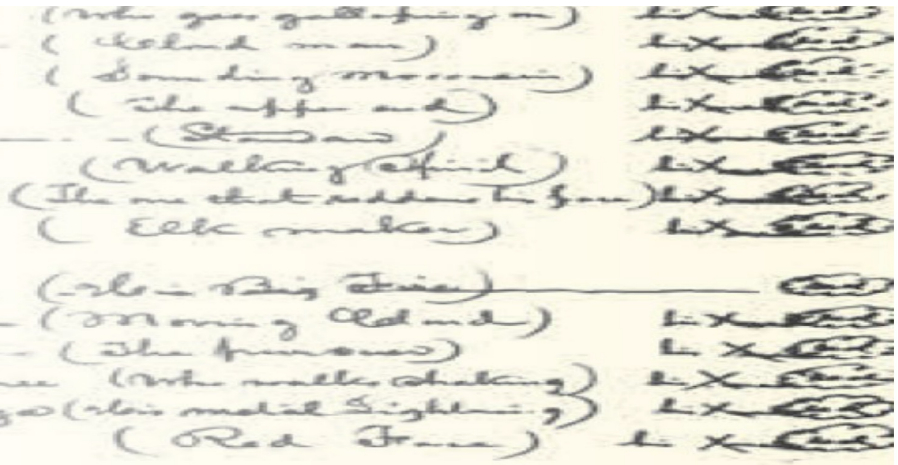 (Who goes galloping on) his X mark seal
( Island man) his X mark seal
( Sounding Moccasin) his X mark seal
( The upper end) his X mark seal
his X mark seal
(Walking Spirit) his X mark seal
(The one that reddens his face) his X mark seal
( Elk maker) his X mark seal
(Big Fire) seal
(Moving Cloud) his X mark seal
(The furnaces) his X mark seal
(Who walks shaking) his X mark seal
(His metal Lightning) his X mark seal
( Red Face) his X mark seal